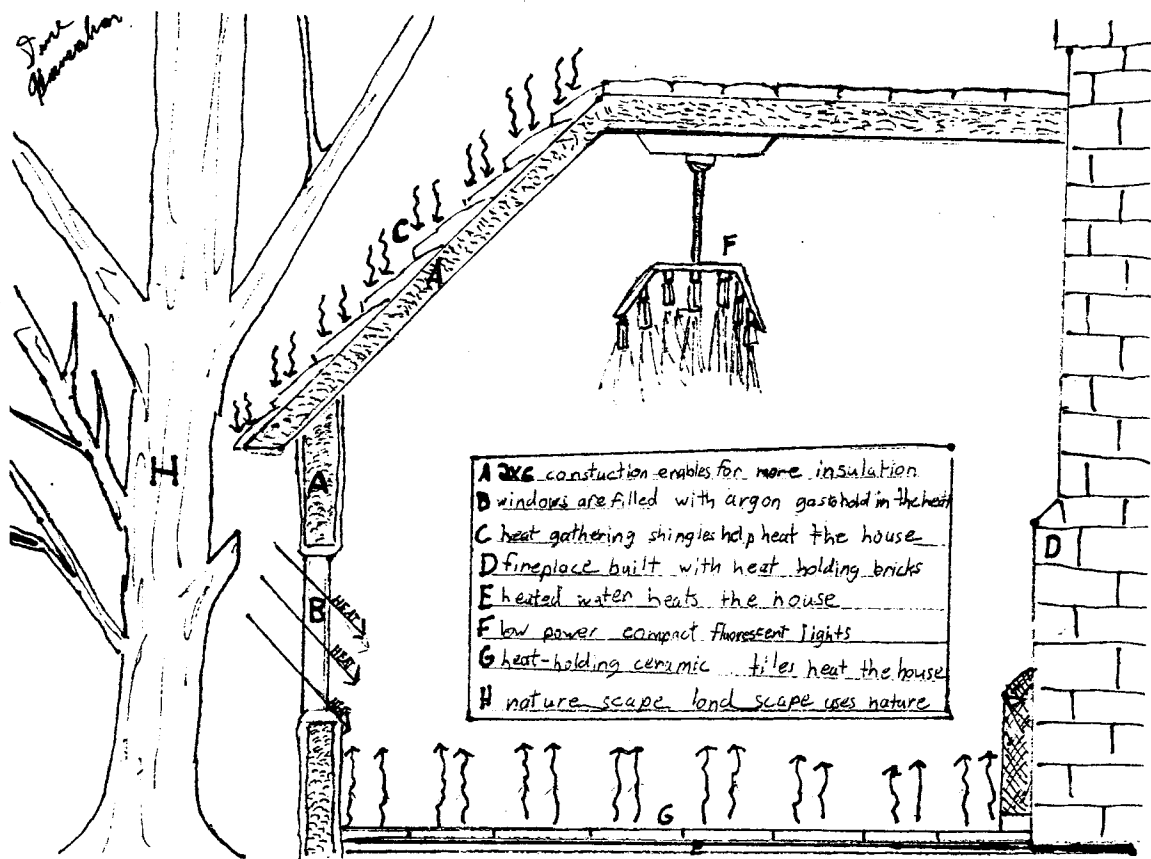 C
F
A
H
A
A 2x6 constuction enables for more insulation
B windows are filled with argon gas to hold in the heat
C heat gathering shingles help heat the house
D fireplace built with heat holding bricks
E heated water heats the house
F low power compact fluorescent lights
G heat-holding ceramic tiles heat the house
H nature scape land scape uses nature
D
B
HEAT
HEAT
HEAT
G